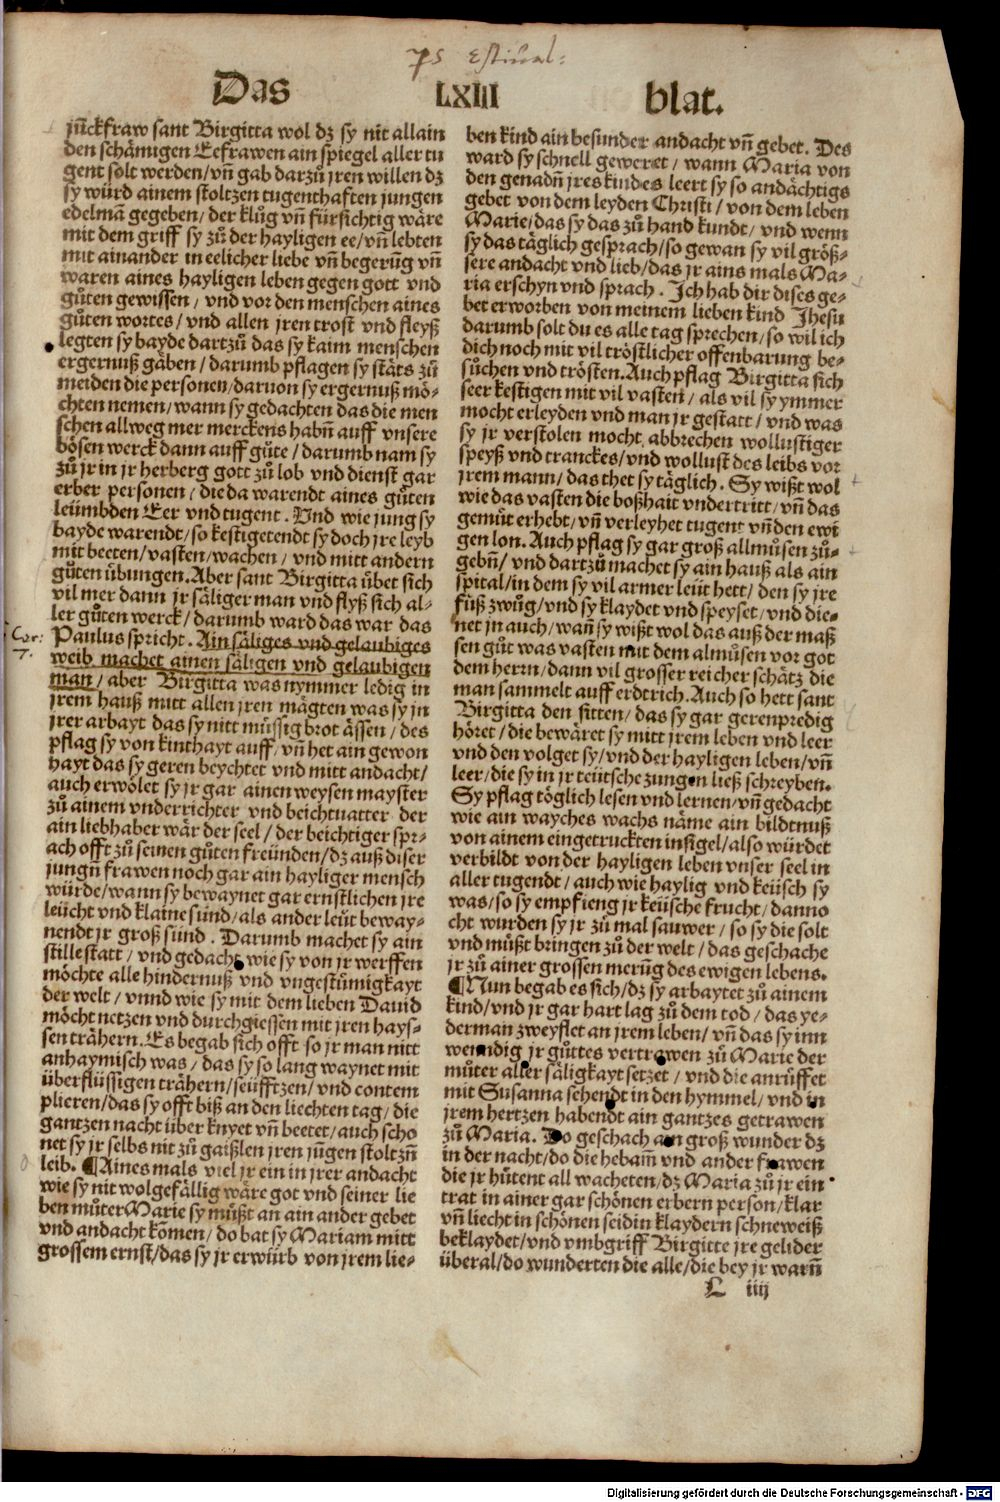 ps Estiual:
Das LXIII blat.
jũckfraw sant Birgitta wol dz sy nit allain
den schämigen Eefrawen ain spiegel aller tu
gent solt werden/vñ gab darzů jren willen dz
sy würd ainem stoltzen tugenthaften jungen
edelmã gegeben/der klůg vñ fürsichtig wäre
mit dem griff sy zů der hayligen ee/vñ lebten
mit ainander in eelicher liebe vñ begerũg vñ
waren aines hayligen leben gegen gott vnd
gůten gewissen/vnd vor den menschen aines
gůten wortes/vnd allen jren trost vnd fleyß
legten sy bayde dartzů das sy kaim menschen
ergernuß gäben/darumb pflagen sy stäts zů
meiden die personen/daruon sy ergernuß mö-
chten nemen/wann sy gedachten das die men
schen allweg mer merckens habñ auff vnsere
bösen werck dann auff gůte/darumb nam sy
zů jr in jr herberg gott zů lob vnd dienst gar
erber personen/die da warendt aines gůten
leümbden Eer vnd tugent. Vnd wie jung sy
bayde warendt/so kestigetendt sy doch jre leyb
mit beeten/vasten/wachen/vnd mitt andern
gůten übungen. Aber sant Birgitta übet sich
vil mer dann jr säliger man vnd flyß sich al-
ler gůten werck/darumb ward das war das
Cor: 7.
Paulus spricht. Ain säliges vnd gelaubiges
weib machet ainen säligen vnd gelaubigen
man/aber Birgitta was nymmer ledig in
jrem hauß mitt allen jren mägten was sy jn
jrer arbayt das sy nitt müssig brot ässen/des
pflag sy von kinthayt auff/vñ het ain gewon
hayt das sy geren beychtet vnd mitt andacht/
auch erwölet sy jr gar ainen weysen mayster
zů ainem vnderrichter vnd beichtuatter der
ain liebhaber wär der seel/der beichtiger spr-
ach offt zů seinen gůten freünden/dz auß diser
jungñ frawen noch gar ain hayliger mensch
würde/wann sy bewaynet gar ernstlichen jre
leücht vnd klaine sünd/als ander leüt beway-
nendt jr groß sünd. Darumb machet sy ain
stille statt/vnd gedacht wie sy von jr werffen
möchte alle hindernuß vnd vngestümigkayt
der welt/vnnd wie sy mit dem lieben Dauid
möcht netzen vnd durchgiessen mit jren hays-
sen trähern. Es begab sich offt so jr man nitt
anhaymisch was/das sy so lang waynet mit
überflüssigen trähern/seüfftzen/vnd contem
plieren/das sy offt biß an den liechten tag/die
gantzen nacht über knyet vñ beetet/auch scho
net sy jr selbs nit zů gaißlen jren jũgen stoltzñ
leib. ¶Aines mals viel jr ein in jrer andacht
wie sy nit wolgefällig wäre got vnd seiner lie
ben můter Marie sy můßt an ain ander gebet
vnd andacht kõmen/do bat sy Mariam mitt
grossem ernst/das sy jr erwürb von jrem lie-
ben kind ain besunder andacht vñ gebet. Des
ward sy schnell geweret/wann Maria von
den genadñ jres kindes leert sy so andächtigs
gebet von dem leyden Christi/von dem leben
Marie/das sy das zů hand kundt/vnd wenn
sy das täglich gesprach/so gewan sy vil größ-
sere andacht vnd lieb/das jr ains mals Ma-
ria erschyn vnd sprach. Ich hab dir dises ge-
bet erworben von meinem lieben kind Jhesu
darumb solt du es alle tag sprechen/so wil ich
dich noch mit vil tröstlicher offenbarung be-
sůchen vnd trösten. Auch pflag Birgitta sich
seer kestigen mit vil vasten/als vil sy ymmer
mocht erleyden vnd man jr gestatt/vnd was
sy jr verstolen mocht abbrechen wollustiger
speyß vnd tranckes/vnd wollust des leibs vor
jrem mann/das thet sy täglich. Sy wißt wol
wie das vasten die boßhait vndertritt/vñ das
gemüt erhebt/vñ verleyhet tugent vñ den ewi
gen lon. Auch pflag sy gar groß allmůsen zů-
gebñ/vnd dartzů machet sy ain hauß als ain
spital/in dem sy vil armer leüt hett/den sy jre
füß zwůg/vnd sy klaydet vnd speyset/vnd die-
net jn auch/wañ sy wißt wol das auß der maß
sen gůt was vasten mit dem almůsen vor got
dem herrn/dann vil grosser reicher schätz die
man sammelt auff erdtrich. Auch so hett sant
Birgitta den sitten/das sy gar geren predig
höret/die bewäret sy mitt jrem leben vnd leer
vnd den volget sy/vnd der hayligen leben/vñ
leer/die sy in jr teütsche zungen ließ schreyben.
Sy pflag töglich lesen vnd lernen/vñ gedacht
wie ain wayches wachs näme ain bildtnuß
von ainem eingetruckten insigel/also würdet
verbildt von der hayligen leben vnser seel in
aller tugendt/auch wie haylig vnd keüsch sy
was/so sy empfieng jr keüsche frucht/danno
cht wurden sy jr zů mal sauwer/so sy die solt
vnd můßt bringen zů der welt/das geschache
jr zů ainer grossen merũg des ewigen lebens.
¶Nun begab es sich/dz sy arbaytet zů ainem
kind/vnd jr gar hart lag zů dem tod/das ye-
derman zweyflet an jrem leben/vñ das sy inn
wenndig jr gůttes vertrawen zů Marie der
můter aller säligkayt setzet/vnd die anrůffet
mit Susanna sehendt in den hymmel/vnd in
jrem hertzen habendt ain gantzes getrawen
zů Maria. Do geschach ain groß wunder dz
in der nacht/do die hebam̃ vnd ander frawen
die jr hůtent all wacheten/dz Maria zů jr ein
trat in ainer gar schönen erbern person/klar
vñ liecht in schönen seidin klaydern schneweiß
beklaydet/vnd vmbgriff Birgitte jre gelider
überal/do wunderten die alle/die bey jr warñ
L iiij
Digitalisierung gefördert durch die Deutsche Forschungsgemeinschaft - DFG